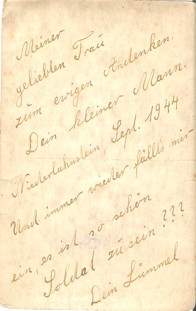 Meiner
geliebten Frau
zum ewigen Andenken.
Dein kleiner Mann.
Niederlahnstein, Sept. 1944.
Und immer wieder fällts mir
ein, es ist so schön
Soldat zu sein???
Dein Lümmel